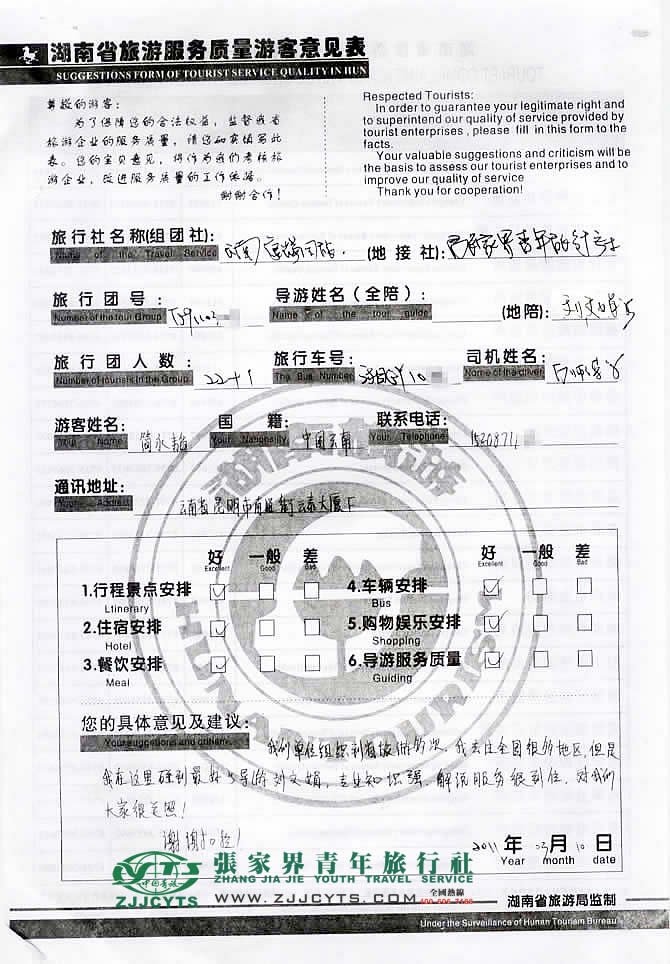 湖南省旅游服务质量游客意见表
SUGGESTIONS FORM OF TOURIST SERVICE QUALITY IN HUN
尊敬的游客：
为了保障您的合法权益，监督我省
旅游企业的服务质量，请您如实填写此
表。您的宝贝意见，将作为我们考核旅
游企业，改进服务质量的工作依据。
谢谢合作！
Respected Tourists:
In order to guarantee your legitimate right and
to superintend our quality of service provided by
tourist enterprises , please fill in this form to the
facts.
Your valuable suggestions and criticism will be
the basis to assess our tourist enterprises and to
improve our quality of service
Thank you for cooperation!
旅行社名称(组团社):
(地接社):
Name of the Travel Service
旅行团号：
导游姓名（全陪）：
(地陪):
Number of the tour Group
Name of the tour guide
旅行团人数： 22+1
旅行车号：
司机姓名：
Number of tourists in the Group
The Bus Number
Name of the driver
游客姓名：
国籍： 中国云南
联系电话： 1520871
Your Name
Your Nationality
Your Telephone
通讯地址：
云南省昆明市
Your Address
好 一般 差 好 一般 差
Excellent Good Bad Excellent Good Bad
1.行程景点安排 4.车辆安排
Ltinerary Bus
2.住宿安排 5.购物娱乐安排
Hotel Shopping
3.餐饮安排 6.导游服务质量
Meal Guiding
HUNAN TOURISM
您的具体意见及建议：
Your suggestions and criticism
我们单位组织到 我去过全国很多地区，但是
我在这里碰到最好的导游刘文娟，专业知识强、解说服务很到位，对我们
大家很关照！
谢谢
2011 年 03 月 10 日
Year month date
中国青旅
ZJJCYTS
張家界青年旅行社
ZHANG JIA JIE YOUTH TRAVEL SERVICE
WWW.ZJJCYTS.COM
全國熱線
湖南省旅游局监制
Under the Surveillance of Hunan Tourism Bureau